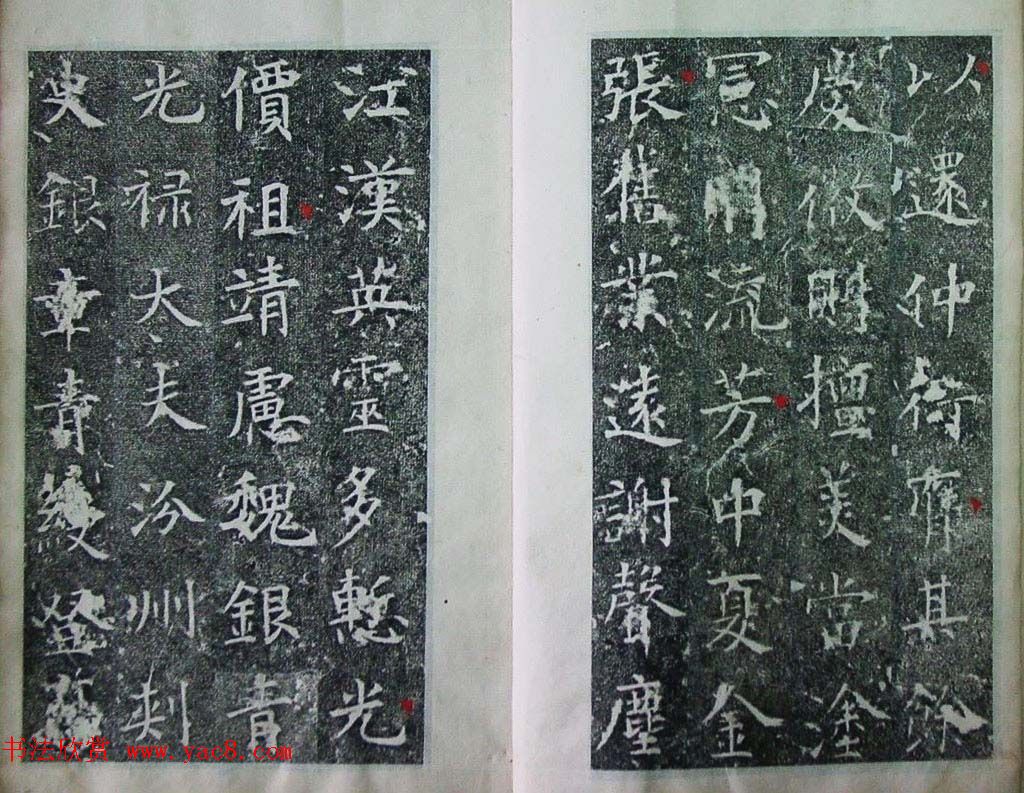 以還仲其餘
慶擅美當塗
流芳中夏金
張舊業遠謝聲塵
江漢英靈多慙光
價祖靖慮魏銀青
光禄大夫汾州刺
史銀章青綬登
书法欣赏 www.yac8.com